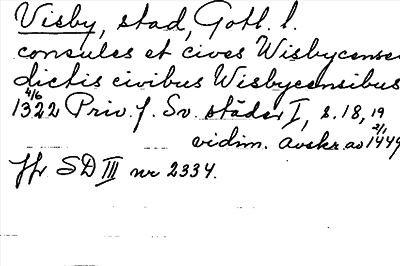 Visby, stad, Gotl. l.
consules et cives Wisbycense
dictis civibus Wisbycensibus
4/6
1322 Priv. f. Sv. städer I, s. 18, 19
vidim. avskr. av 2/1 1449
Jfr SD III nr 2334.